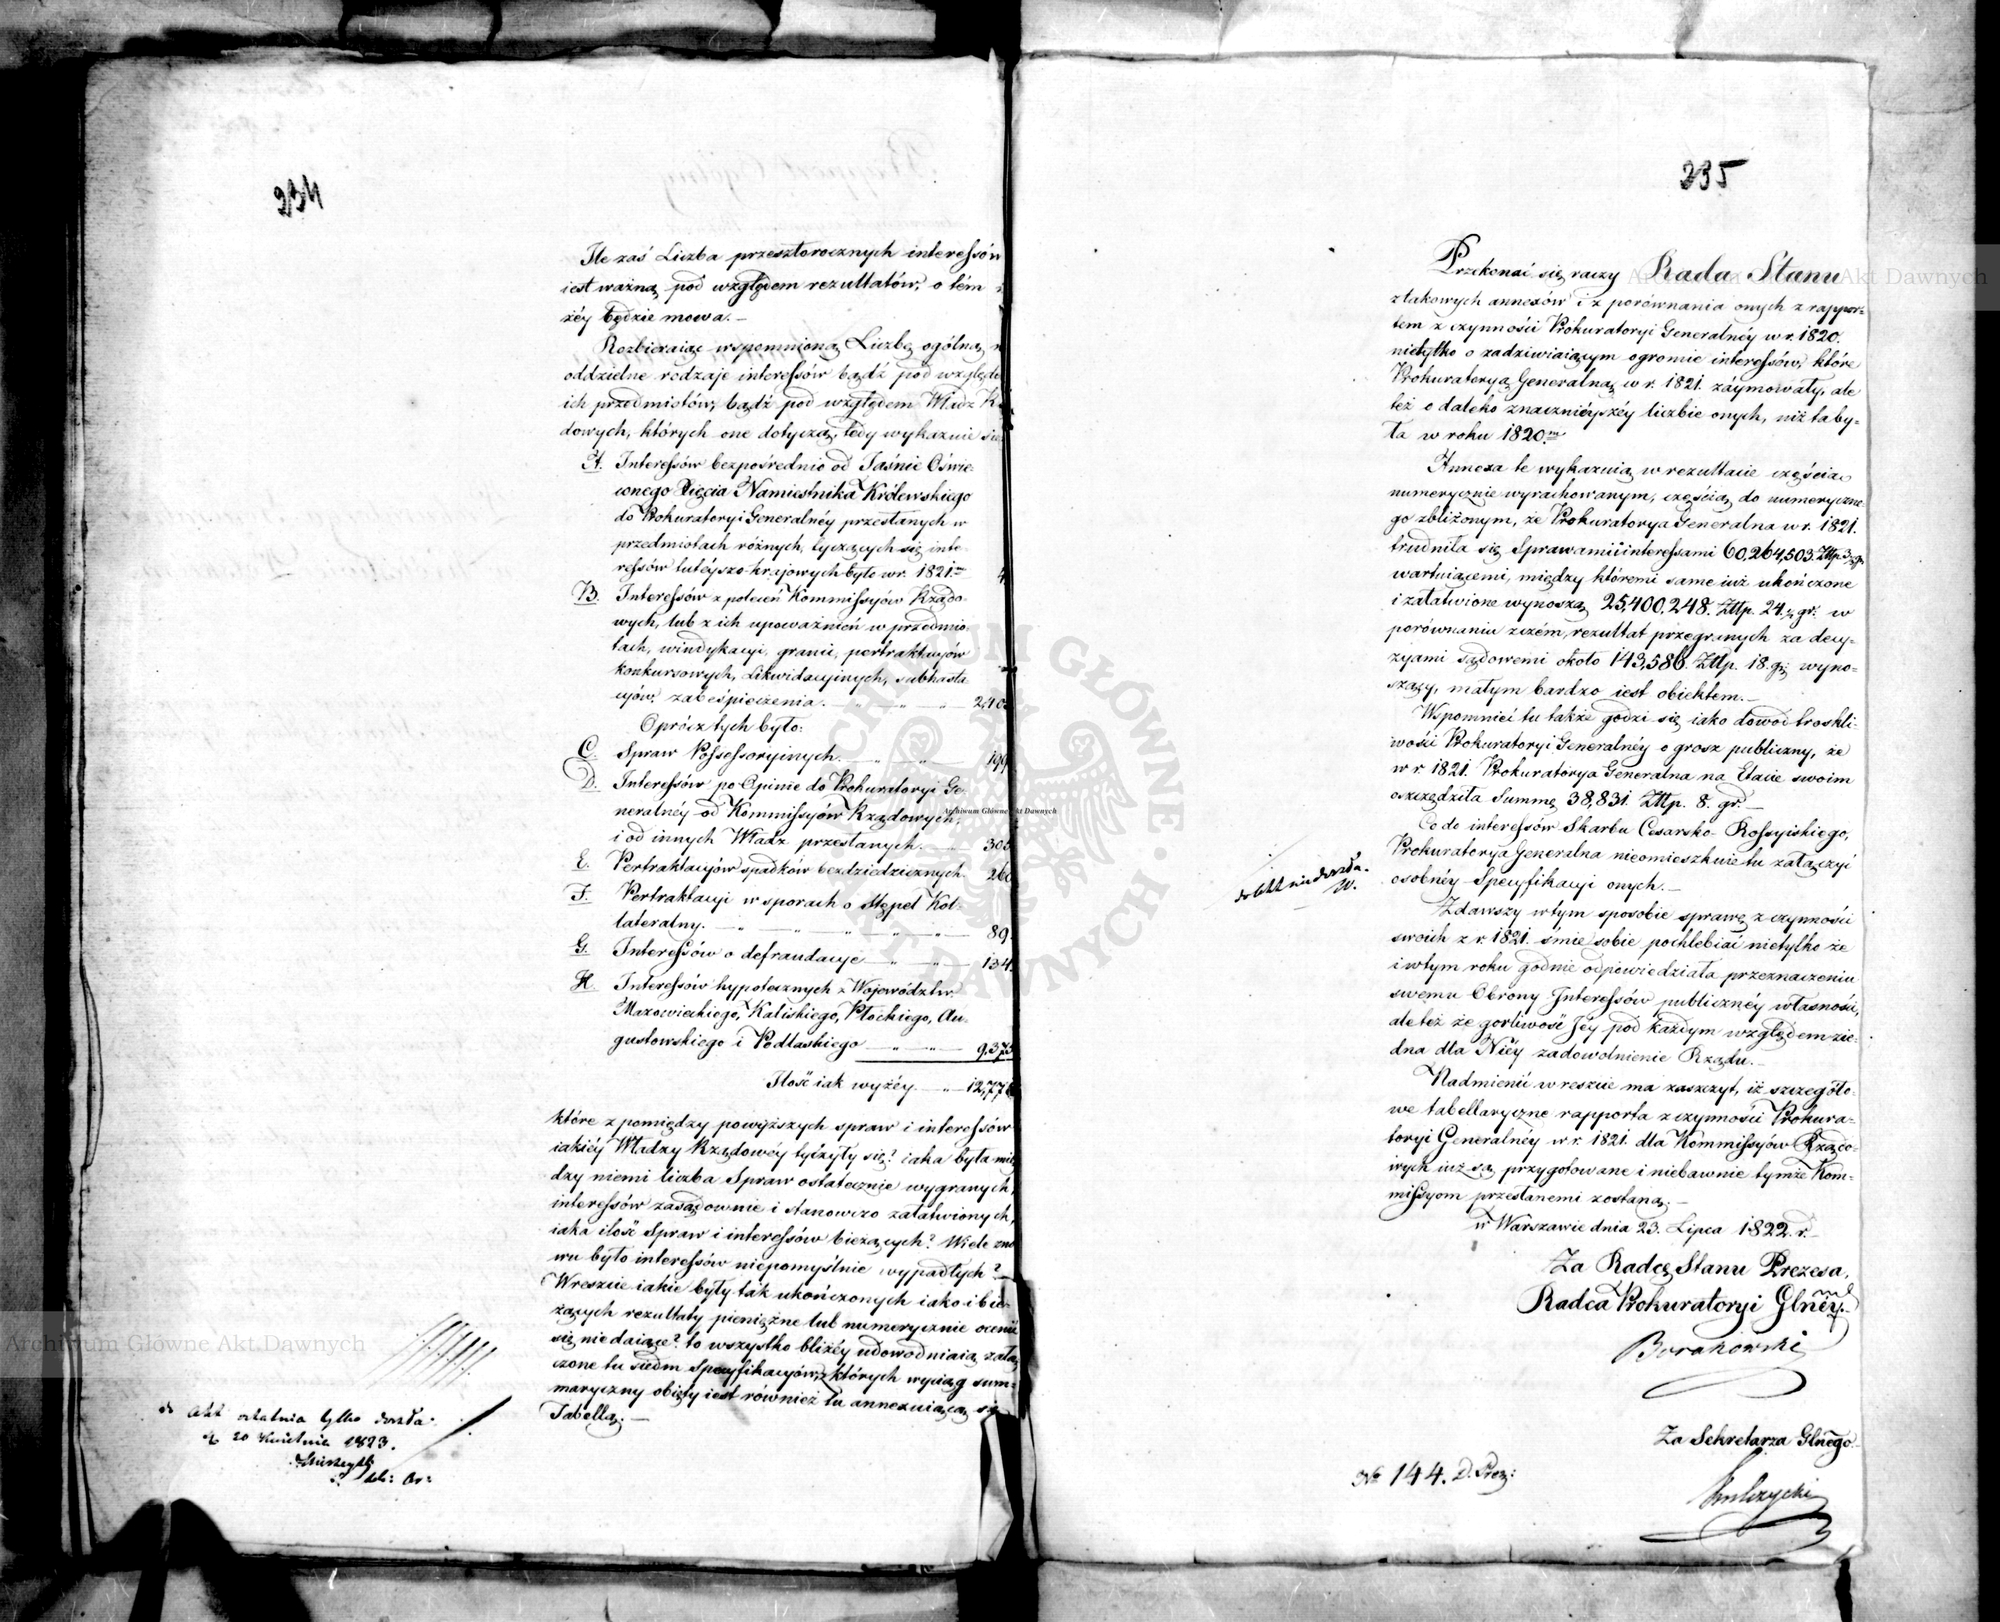 234
Ile zaś Liczba przeszłorocznych interessów
iest ważną pod względem rezultatów, o tém
żéy będzie mowa. —
Rozbieraiąc wspomnioną Liczbę ogólną
oddzielne rodzaje interessów bądź pod względe
ich przedmiotów, bądź pod względem Władz
dowych, których one dotyczą, tedy wykazuie się
A. Interessów bezpośrednio od Jaśnie Oświe-
conego Xięcia Namiestnika Królewskiego
do Prokuratoryi Generalnéy przesłanych w
przedmiotach różnych, tyczących się inte-
ressów tuteyszo-krajowych było w r. 1821. 4
B. Interessów z poleceń Kommissyów Rządo-
wych, lub z ich upoważnień w przedmio-
tach, windykacyi, granic, pertraktacyów
konkursowych, Likwidacyinych, subhasta-
cyów, zabeśpieczenia. — " — " — " — 2,40
Oprócz tych było:
C. Spraw Possessoryinych. — " — " — 199
D. Interessów po Opinie do Prokuratoryi Ge-
neralnéy od Kommissyów Rządowych,
i od innych Władz przesłanych. — 305
E. Pertraktacyów spadków bezdziedzicznych. 260
F. Pertraktacyi w sporach o Stępel Kol-
lateralny. — " — " — " — " — " — 89.
G. Interessów o defraudacye — " — " — 134.
H. Interessów hypotecznych z Województw.
Mazowieckiego, Kaliskiego, Płockiego, Au-
gustowskiego i Podlaskiego — " — " — 9,375
Ilość iak wyżéy. — " — 12,77
które z pomiędzy powyższych spraw i interessów
iakiéy Władzy Rządowéy tyczyły się? iaka była mię
dzy niemi liczba Spraw ostatecznie wygranych,
interessów zasądownie i stanowczo załatwionych,
iaka ilość Spraw i interessów bieżących? Wiele zno
wu było interessów niepomyślnie wypadłych? —
Wreszcie iakie były tak ukończonych iako i bie-
żących rezultaty pieniężne lub numerycznie ocenić
się niedaiące? to wszystko bliżéy udowodniaią załą
czone tu siedm Specyfikacyów, których wyciąg sum-
maryczny obięty iest również tu annexuiącą się
Tabellą. —
do Akt ostatnia tylko doszła.
d. 20 Kwietnia 1823.
235
Przekonać się raczy Rada Stanu
z takowych annexów i z porównania onych z rappor-
tem z czynności Prokuratoryi Generalnéy w r. 1820.
nietylko o zadziwiaiącym ogromie interessów, które
Prokuratoryą Generalną w r. 1821. zaymowały, ale
też o daleko znacznieyszéy liczbie onych, niż ta by-
ła w roku 1820.m
Annexa te wykazuią w rezultacie częścią
numerycznie wyrachowanym, częścią do numeryczne-
go zbliżonym, że Prokuratorya Generalna w r. 1821.
trudniła się Sprawami i interessami 60,264,503. Złtp. 3 gr.
wartuiącemi, między któremi same iuż ukończone
i załatwione wynoszą 25,400,248. Złtp. 24. gr. w
porównaniu z czém, rezultat przegranych za decy-
zyami sądowemi około 143,586. Złtp. 18. gr. wyno-
szący, małym bardzo iest obiektem. —
Wspomnieć tu także godzi się iako dowód troskli-
wości Prokuratoryi Generalnéy o grosz publiczny, że
w r. 1821. Prokuratorya Generalna na Etacie swoim
oszczędziła Summę 38,831. Złtp. 8. gr. —
Co do interessów Skarbu Cesarsko-Rossyiskiego,
Prokuratorya Generalna nieomieszkuie tu załączyć
osobnéy Specyfikacyi onych. —
do Akt nie doszła.
W.
Zdawszy w tym sposobie sprawę z czynności
swoich z r. 1821. śmie sobie pochlebiać nietylko że
i w tym roku godnie odpowiedziała przeznaczeniu
swemu Obrony Interessów publicznéy własności,
ale też że gorliwość Jéy pod każdym względem zie-
dna dla Niéy zadowolnienie Rządu. —
Nadmienić w reszcie ma zaszczyt, iż szczegóło-
we tabellaryczne rapporta z czynności Prokura-
toryi Generalnéy w r. 1821. dla Kommissyów Rządo-
wych iuż są przygotowane i niebawnie tymże Kom-
missyom przesłanemi zostaną. —
w Warszawie dnia 23. Lipca 1822. r. —
Za Radcę Stanu Prezesa,
Radca Prokuratoryi Glnéy.
Borakowski
Za Sekretarza Glnego.
Kulczycki
No 144. D. Prez:
Archiwum Główne Akt Dawnych
Archiwum Główne Akt Dawnych
Archiwum Główne Akt Dawnych
ARCHIWUM GŁÓWNE AKT DAWNYCH